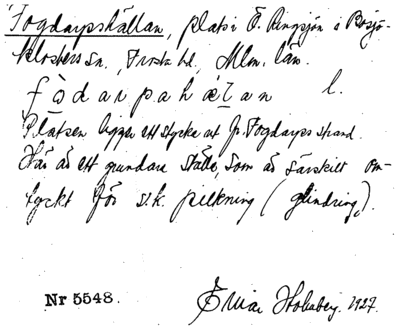 Fogdarpshällan, plats i Ö. Ringsjön i Bosjö-
klosters sn., Frosta hd., Mlm. län.
fòdarpahætan l.
Platsen ligger ett stycke ut fr. Fogdarps strand.
Här är ett grundare ställe, som är särskilt om-
tyckt för s.k. pilkning (glindring).
Nr 5548.
Holmberg. 1927.